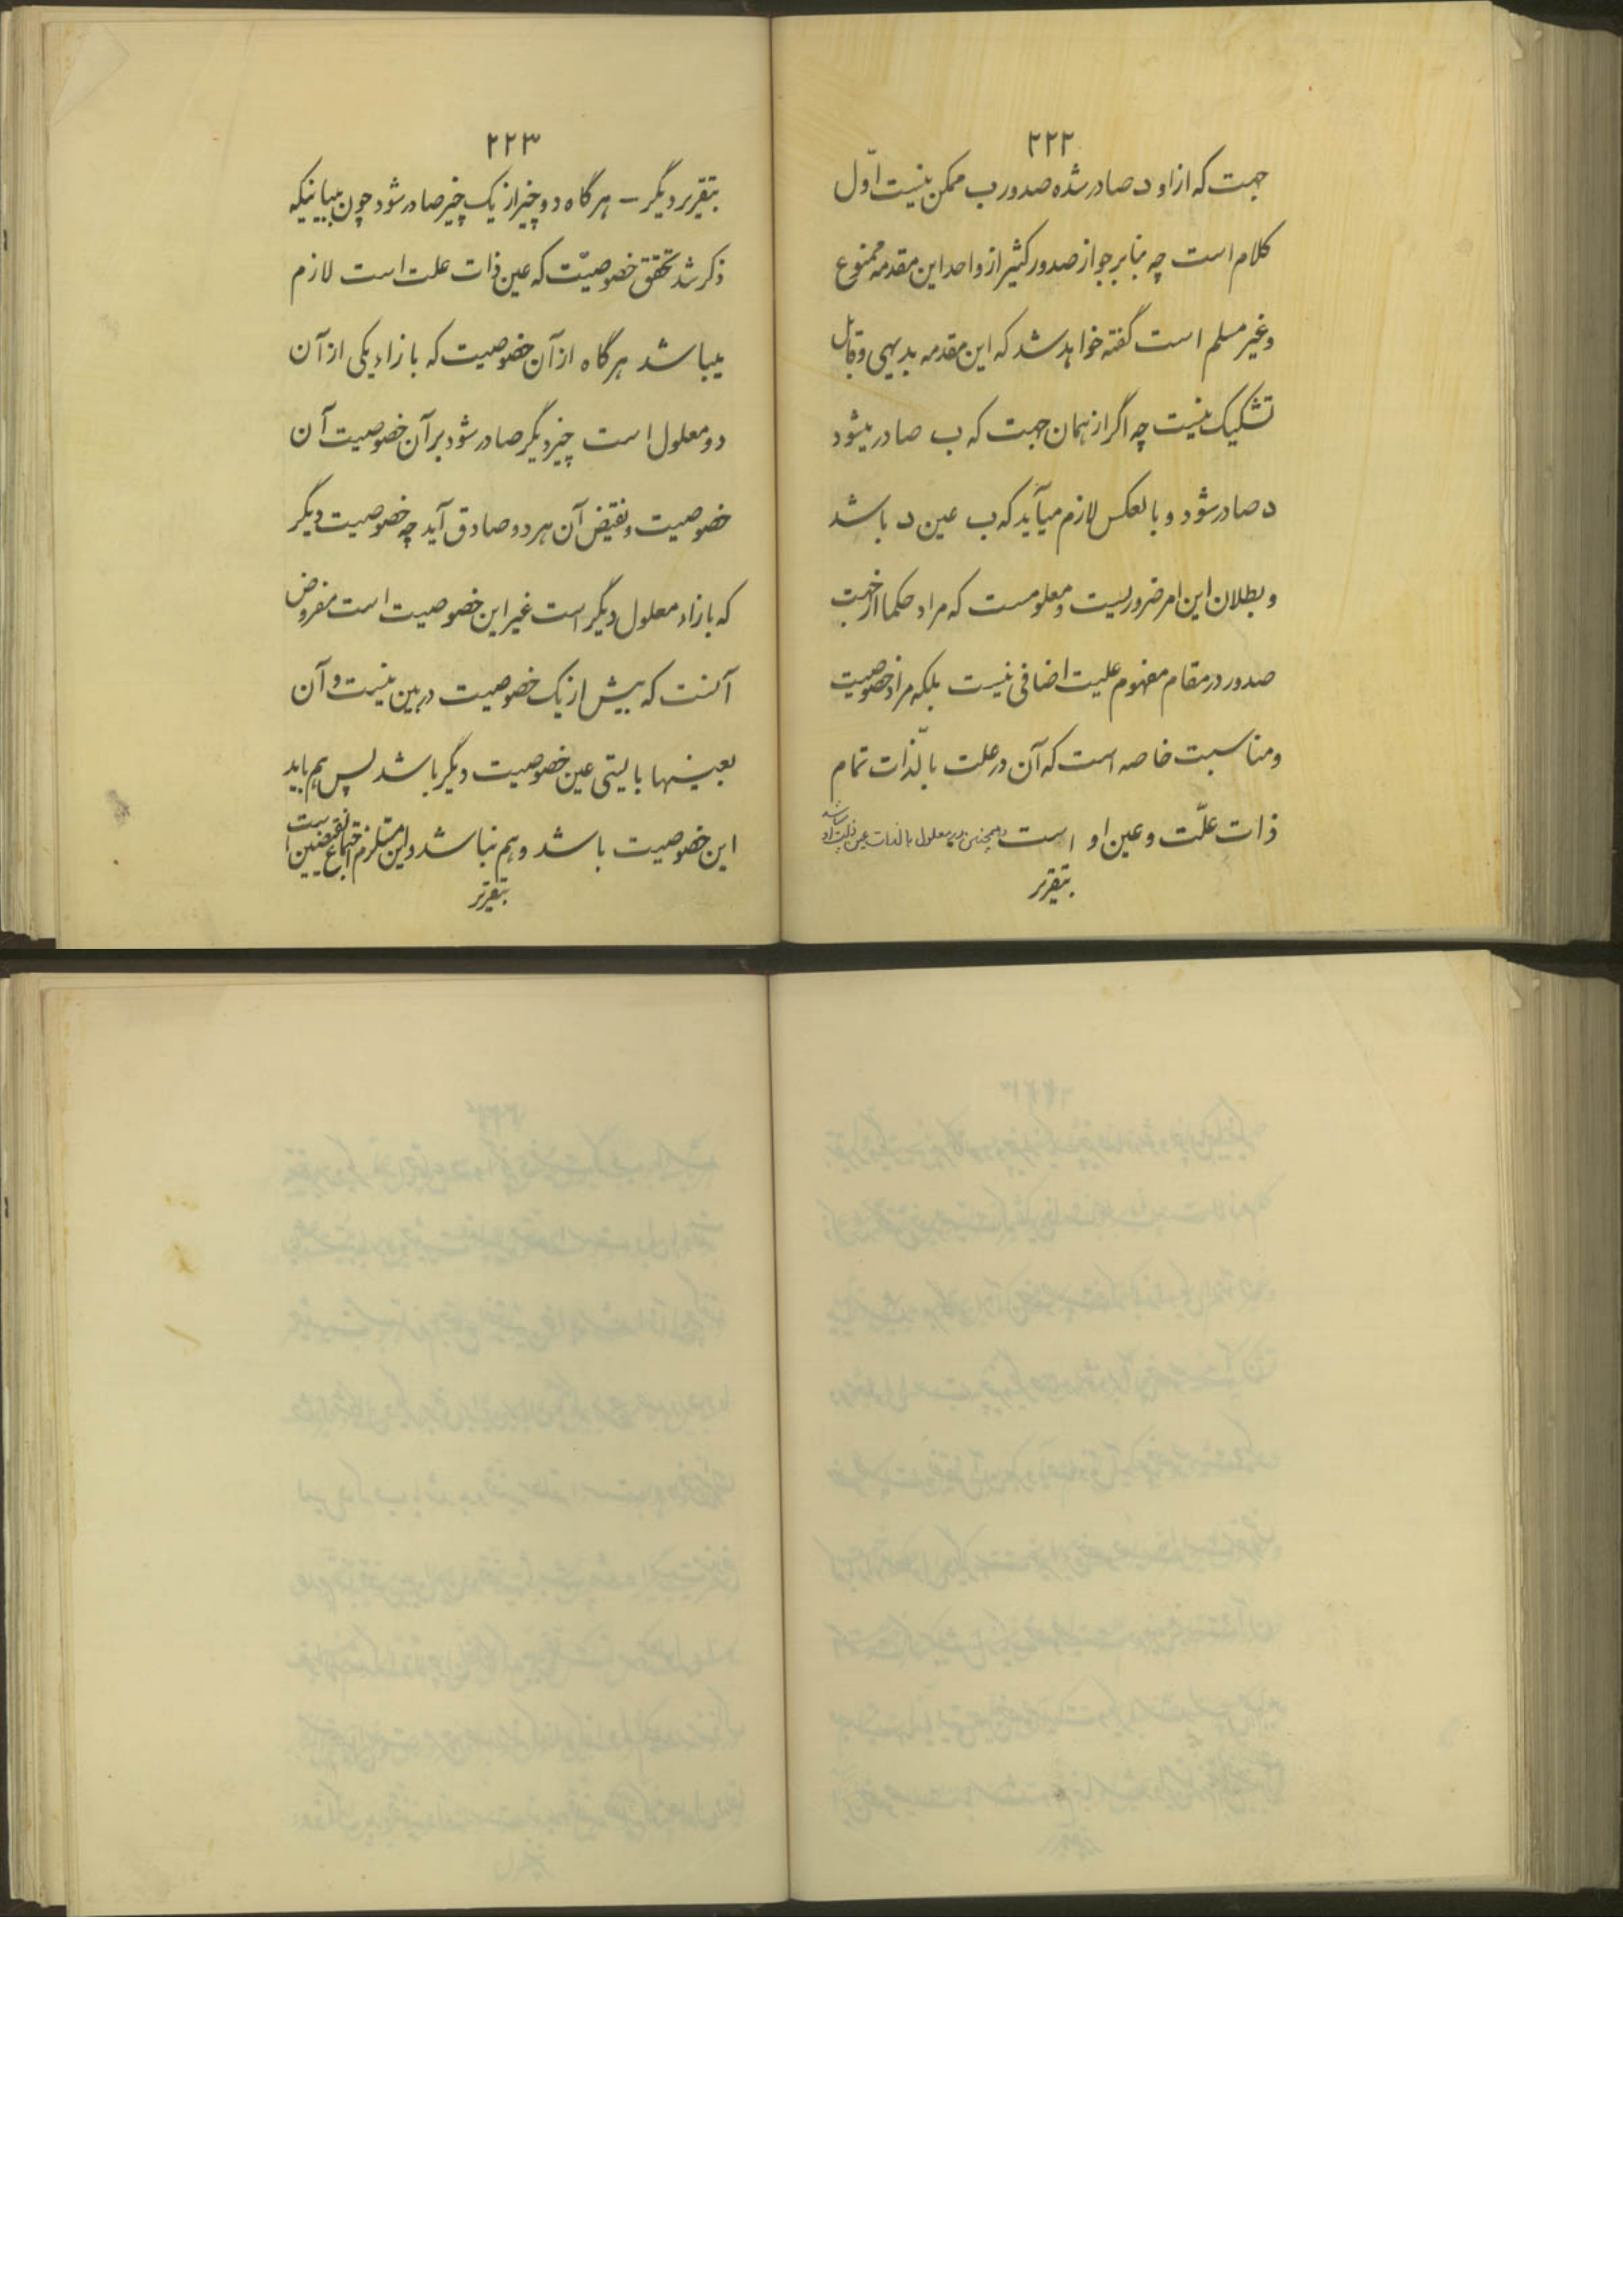 ۲۲۲
جهت که از او د صادر شده صدور ب ممکن نیست اوّل
کلام است چه بنابر جواز صدور کثیر از واحد این مقدمه ممنوع
و غیر مسلم است گفته خواهد شد که این مقدمه بدیهی و قابل
تشکیک نیست چه اگر از همان جهت که ب صادر میشود
د صادر شود و بالعکس لازم میآید که ب عین د باشد
و بطلان این امر ضروریست و معلومست که مراد حکما از جهت
صدور در مقام مفهوم علیت اضافی نیست بلکه مراد خصوصیت
و مناسبت خاصه است که آن در علت بالّذات تمام
ذات علّت و عین او است و همچنین در معلول بالذات عین ذات او باشد
بتقریر
۲۲۳
بتقریر دیگر – هر گاه دو چیز از یک چیز صادر شود چون ببیانیکه
ذکر شد تحقق خصوصیّت که عین ذات علت است لازم
میباشد هر گاه از آن خصوصیت که بازاء یکی از آن
دو معلول است چیز دیگر صادر شود بر آن خصوصیت آن
خصوصیت و نقیض آن هر دو صادق آید چه خصوصیت دیگر
که بازاء معلول دیگر است غیر این خصوصیت است مفروض
آنست که بیش از یک خصوصیت در بین نیست و آن
بعینها بایستی عین خصوصیت دیگر باشد پس هم باید
این خصوصیت باشد و هم نباشد و این مستلزم اجتماع نقیضین است
بتقریر